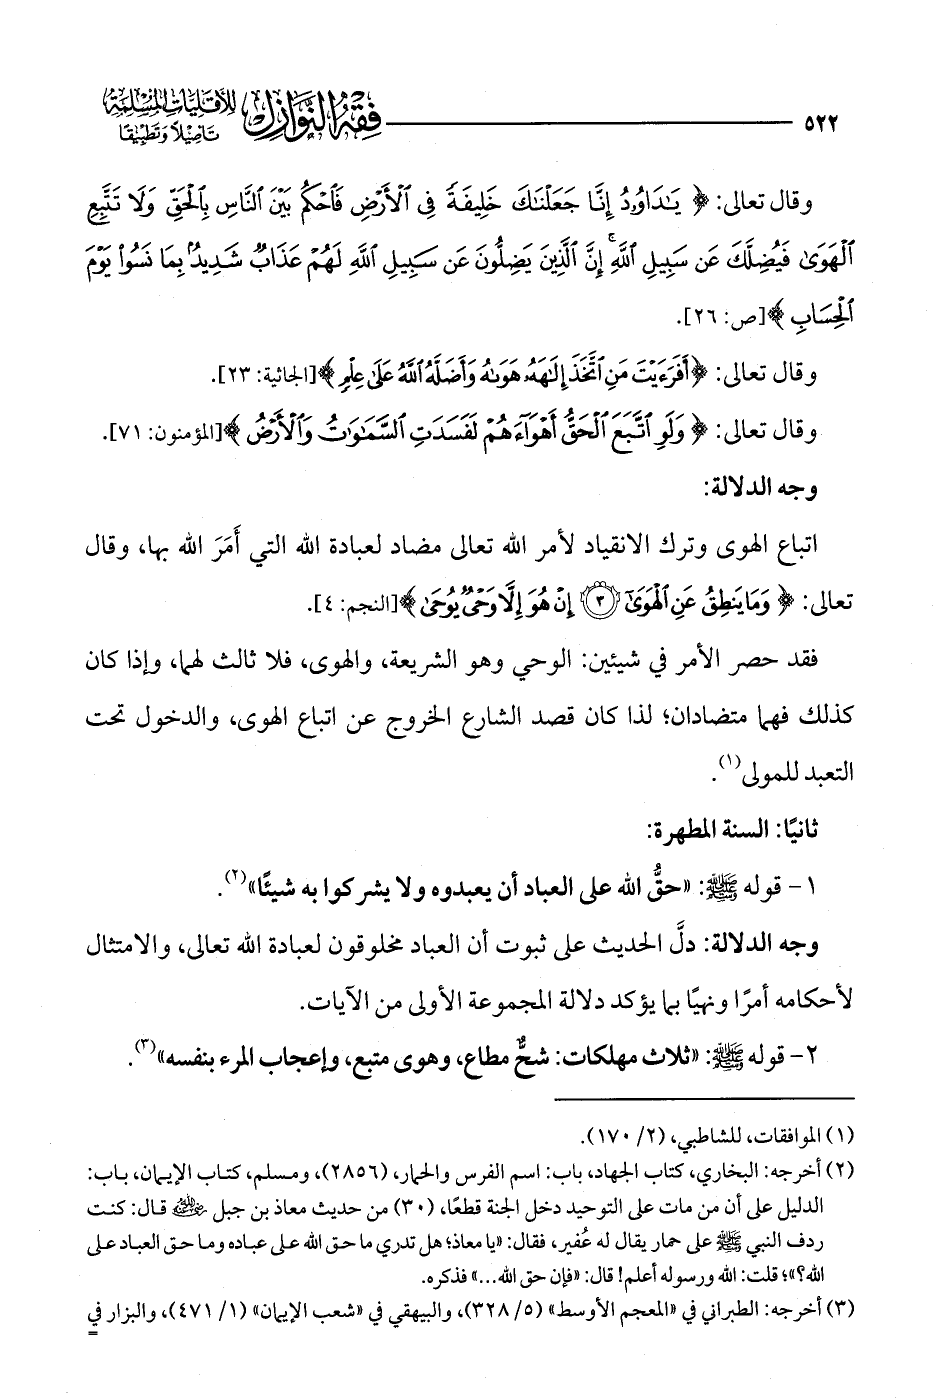 ٥٢٢ فقه النوازل للأقليات المسلمة
تأصيلًا وتطبيقًا
وقال تعالى: ﴿ يَٰدَاوُۥدُ إِنَّا جَعَلْنَٰكَ خَلِيفَةً فِى ٱلْأَرْضِ فَٱحْكُم بَيْنَ ٱلنَّاسِ بِٱلْحَقِّ وَلَا تَتَّبِعِ
ٱلْهَوَىٰ فَيُضِلَّكَ عَن سَبِيلِ ٱللَّهِ ۚ إِنَّ ٱلَّذِينَ يَضِلُّونَ عَن سَبِيلِ ٱللَّهِ لَهُمْ عَذَابٌ شَدِيدٌۢ بِمَا نَسُوا۟ يَوْمَ
ٱلْحِسَابِ ﴾[ص: ٢٦].
وقال تعالى: ﴿أَفَرَءَيْتَ مَنِ ٱتَّخَذَ إِلَٰهَهُۥ هَوَىٰهُ وَأَضَلَّهُ ٱللَّهُ عَلَىٰ عِلْمٍ﴾[الجاثية: ٢٣].
وقال تعالى: ﴿ وَلَوِ ٱتَّبَعَ ٱلْحَقُّ أَهْوَآءَهُمْ لَفَسَدَتِ ٱلسَّمَٰوَٰتُ وَٱلْأَرْضُ ﴾[المؤمنون: ٧١].
وجه الدلالة:
اتباع الهوى وترك الانقياد لأمر الله تعالى مضاد لعبادة الله التي أَمَرَ الله بها، وقال
تعالى: ﴿ وَمَا يَنطِقُ عَنِ ٱلْهَوَىٰٓ ۝٣ إِنْ هُوَ إِلَّا وَحْىٌ يُوحَىٰ ﴾[النجم: ٤].
فقد حصر الأمر في شيئين: الوحي وهو الشريعة، والهوى، فلا ثالث لهما، وإذا كان
كذلك فهما متضادان؛ لذا كان قصد الشارع الخروج عن اتباع الهوى، والدخول تحت
التعبد للمولى(١).
ثانيًا: السنة المطهرة:
١- قوله ﷺ: «حقُّ الله على العباد أن يعبدوه ولا يشركوا به شيئًا»(٢).
وجه الدلالة: دلَّ الحديث على ثبوت أن العباد مخلوقون لعبادة الله تعالى، والامتثال
لأحكامه أمرًا ونهيًا بما يؤكد دلالة المجموعة الأولى من الآيات.
٢- قوله ﷺ: «ثلاث مهلكات: شحٌّ مطاع، وهوى متبع، وإعجاب المرء بنفسه»(٣).
(١) الموافقات، للشاطبي، (٢/ ١٧٠).
(٢) أخرجه: البخاري، كتاب الجهاد، باب: اسم الفرس والحمار، (٢٨٥٦)، ومسلم، كتاب الإيمان، باب:
الدليل على أن من مات على التوحيد دخل الجنة قطعًا، (٣٠) من حديث معاذ بن جبل رضي الله عنه قال: كنت
ردف النبي ﷺ على حمار يقال له عُفير، فقال: «يا معاذ؛ هل تدري ما حق الله على عباده وما حق العباد على
الله؟»؛ قلت: الله ورسوله أعلم! قال: «فإن حق الله...» فذكره.
(٣) أخرجه: الطبراني في «المعجم الأوسط» (٥/ ٣٢٨)، والبيهقي في «شعب الإيمان» (١/ ٤٧١)، والبزار في
=